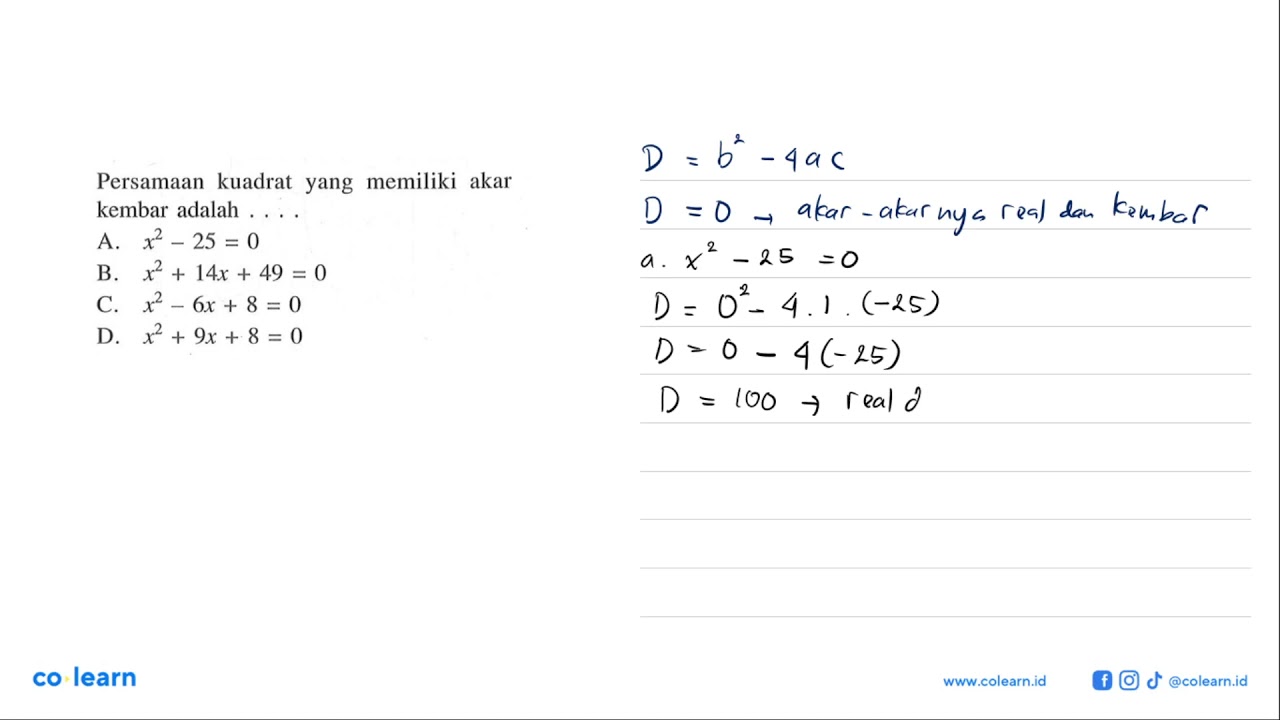 Persamaan kuadrat yang memiliki akar
kembar adalah . . . .
A. x² – 25 = 0
B. x² + 14x + 49 = 0
C. x² – 6x + 8 = 0
D. x² + 9x + 8 = 0
D = b² - 4ac
D = 0 → akar-akarnya real dan kembar
a. x² - 25 = 0
D = 0² - 4.1.(-25)
D = 0 - 4(-25)
D = 100 → real d
co learn
www.colearn.id
@colearn.id